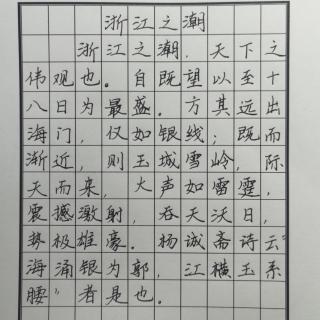 浙江之潮
浙江之潮，天下之
伟观也。自既望以至十
八日为最盛。方其远出
海门，仅如银线；既而
渐近，则玉城雪岭，际
天而来，大声如雷霆，
震撼激射，吞天沃日，
势极雄豪。杨诚斋诗云“
海涌银为郭，江横玉系
腰”者是也。